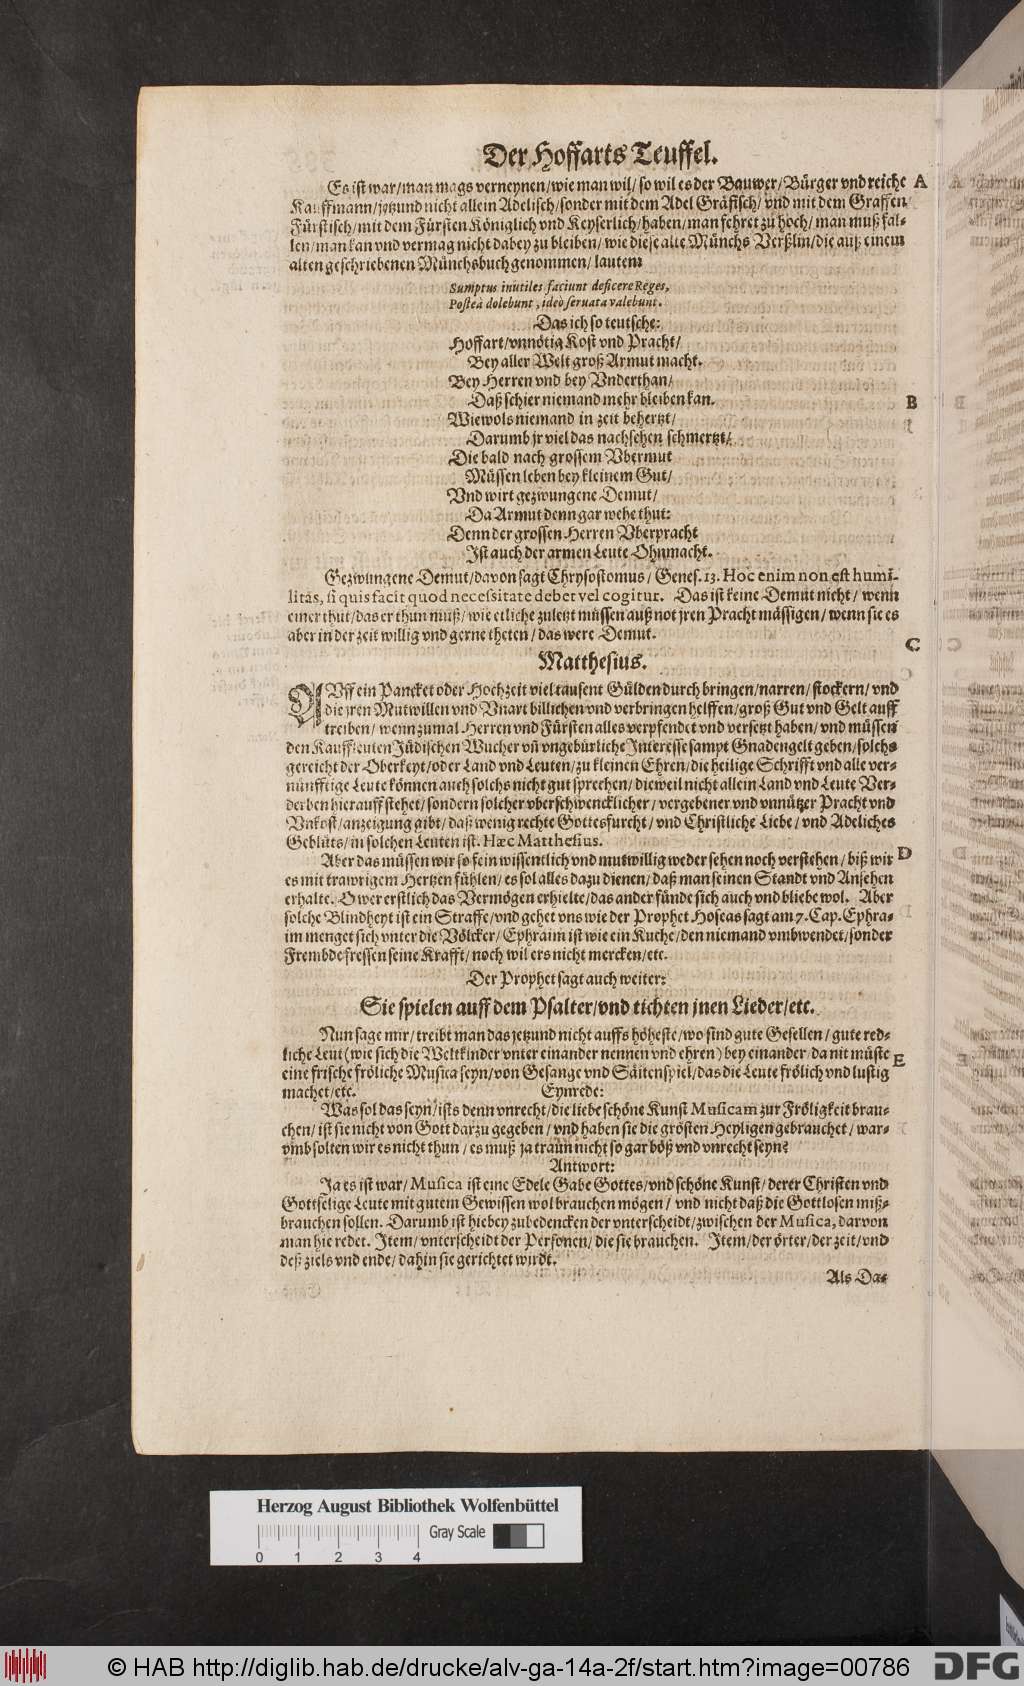 Der Hoffarts Teuffel.
Es ist war/ man mags verneynen/ wie man wil/ so wil es der Bauwer/ Bürger vnd reiche A
Kauffmann/ jetzund nicht allein Adelisch/ sonder mit dem Adel Gräfisch/ vnd mit dem Graffen
Fürstisch/ mit dem Fürsten Königlich vnd Keyserlich/ haben/ man fehret zu hoch/ man muß fal-
len/ man kan vnd vermag nicht dabey zu bleiben/ wie diese alte Münchs Verßlin/ die auß einem
alten geschriebenen Münchsbuch genommen/ lauten:
Sumptus inutiles faciunt deficere Reges,
Posteà dolebunt, ideò seruata valebunt.
Das ich so teutsche:
Hoffart/ vnnötig Kost vnd Pracht/
Bey aller Welt groß Armut macht.
Bey Herren vnd bey Vnderthan/
Daß schier niemand mehr bleiben kan. B
Wiewols niemand in zeit behertzt/
Darumb jr viel das nachsehen schmertzt/
Die bald nach grossem Vbermut
Müssen leben bey kleinem Gut/
Vnd wirt gezwungene Demut/
Da Armut denn gar wehe thut:
Denn der grossen Herren Vberpracht
Ist auch der armen Leute Ohnmacht.
Gezwungene Demut/ davon sagt Chrysostomus/ Genes. 13. Hoc enim non est humi-
litas, si quis facit quod necessitate debet vel cogitur. Das ist keine Demut nicht/ wenn
einer thut/ das er thun muß/ wie etliche zuletzt müssen auß not jren Pracht mässigen/ wenn sie es
aber in der zeit willig vnd gerne theten/ das were Demut.
C
Matthesius.
AVff ein Pancket oder Hochzeit viel tausent Gülden durch bringen/ narren/ stockern/ vnd
die jren Mutwillen vnd Vnart billichen vnd verbringen helffen/ groß Gut vnd Gelt auff
treiben/ wenn zumal Herren vnd Fürsten alles verpfendet vnd versetzt haben/ vnd müssen
den Kauffleuten Jüdischen Wucher vñ vngebürliche Interesse sampt Gnadengelt geben/ solchs
gereicht der Oberkeyt/ oder Land vnd Leuten/ zu kleinen Ehren/ die heilige Schrifft vnd alle ver-
nünfftige Leute können auch solchs nicht gut sprechen/ dieweil nicht allein Land vnd Leute Ver-
derben hierauff stehet/ sondern solcher vberschwencklicher/ vergebener vnd vnnützer Pracht vnd
Vnkost/ anzeigung gibt/ daß wenig rechte Gottesfurcht/ vnd Christliche Liebe/ vnd Adeliches
Geblüts/ in solchen Leuten ist. Hæc Matthesius.
Aber das müssen wir so fein wissentlich vnd mutwillig weder sehen noch verstehen/ biß wir D
es mit trawrigem Hertzen fühlen/ es sol alles dazu dienen/ daß man seinen Standt vnd Ansehen
erhalte. O wer erstlich das Vermögen erhielte/ das ander fünde sich auch vnd bliebe wol. Aber
solche Blindheyt ist ein Straffe/ vnd gehet vns wie der Prophet Hoseas sagt am 7. Cap. Ephra-
im menget sich vnter die Völcker/ Ephraim ist wie ein Kuche/ den niemand vmbwendet/ sonder
Frembde fressen seine Krafft/ noch wil ers nicht mercken/ etc.
Der Prophet sagt auch weiter:
Sie spielen auff dem Psalter/ vnd tichten jnen Lieder/ etc.
Nun sage mir/ treibt man das jetzund nicht auffs höheste/ wo sind gute Gesellen/ gute red-
liche Leut (wie sich die Weltkinder vnter einander nennen vnd ehren) bey einander da nit müste E
eine frische fröliche Musica seyn/ von Gesange vnd Säitenspiel/ das die Leute frölich vnd lustig
machet/ etc. Eynrede:
Was sol das seyn/ ists denn vnrecht/ die liebe schöne Kunst Musicam zur Fröligkeit brau-
chen/ ist sie nicht von Gott darzu gegeben/ vnd haben sie die grösten Heyligen gebrauchet/ war-
vmb solten wir es nicht thun/ es muß ja traun nicht so gar böß vnd vnrecht seyn?
Antwort:
Ja es ist war/ Musica ist eine Edele Gabe Gottes/ vnd schöne Kunst/ derer Christen vnd
Gottselige Leute mit gutem Gewissen wol brauchen mögen/ vnd nicht daß die Gottlosen miß-
brauchen sollen. Darumb ist hiebey zubedencken der vnterscheidt/ zwischen der Musica, darvon
man hie redet. Item/ vnterscheidt der Personen/ die sie brauchen. Item/ der örter/ der zeit/ vnd
deß ziels vnd ende/ dahin sie gerichtet wirdt.
Als Da-
Herzog August Bibliothek Wolfenbüttel
Gray Scale
0 1 2 3 4
© HAB http://diglib.hab.de/drucke/alv-ga-14a-2f/start.htm?image=00786
DFG